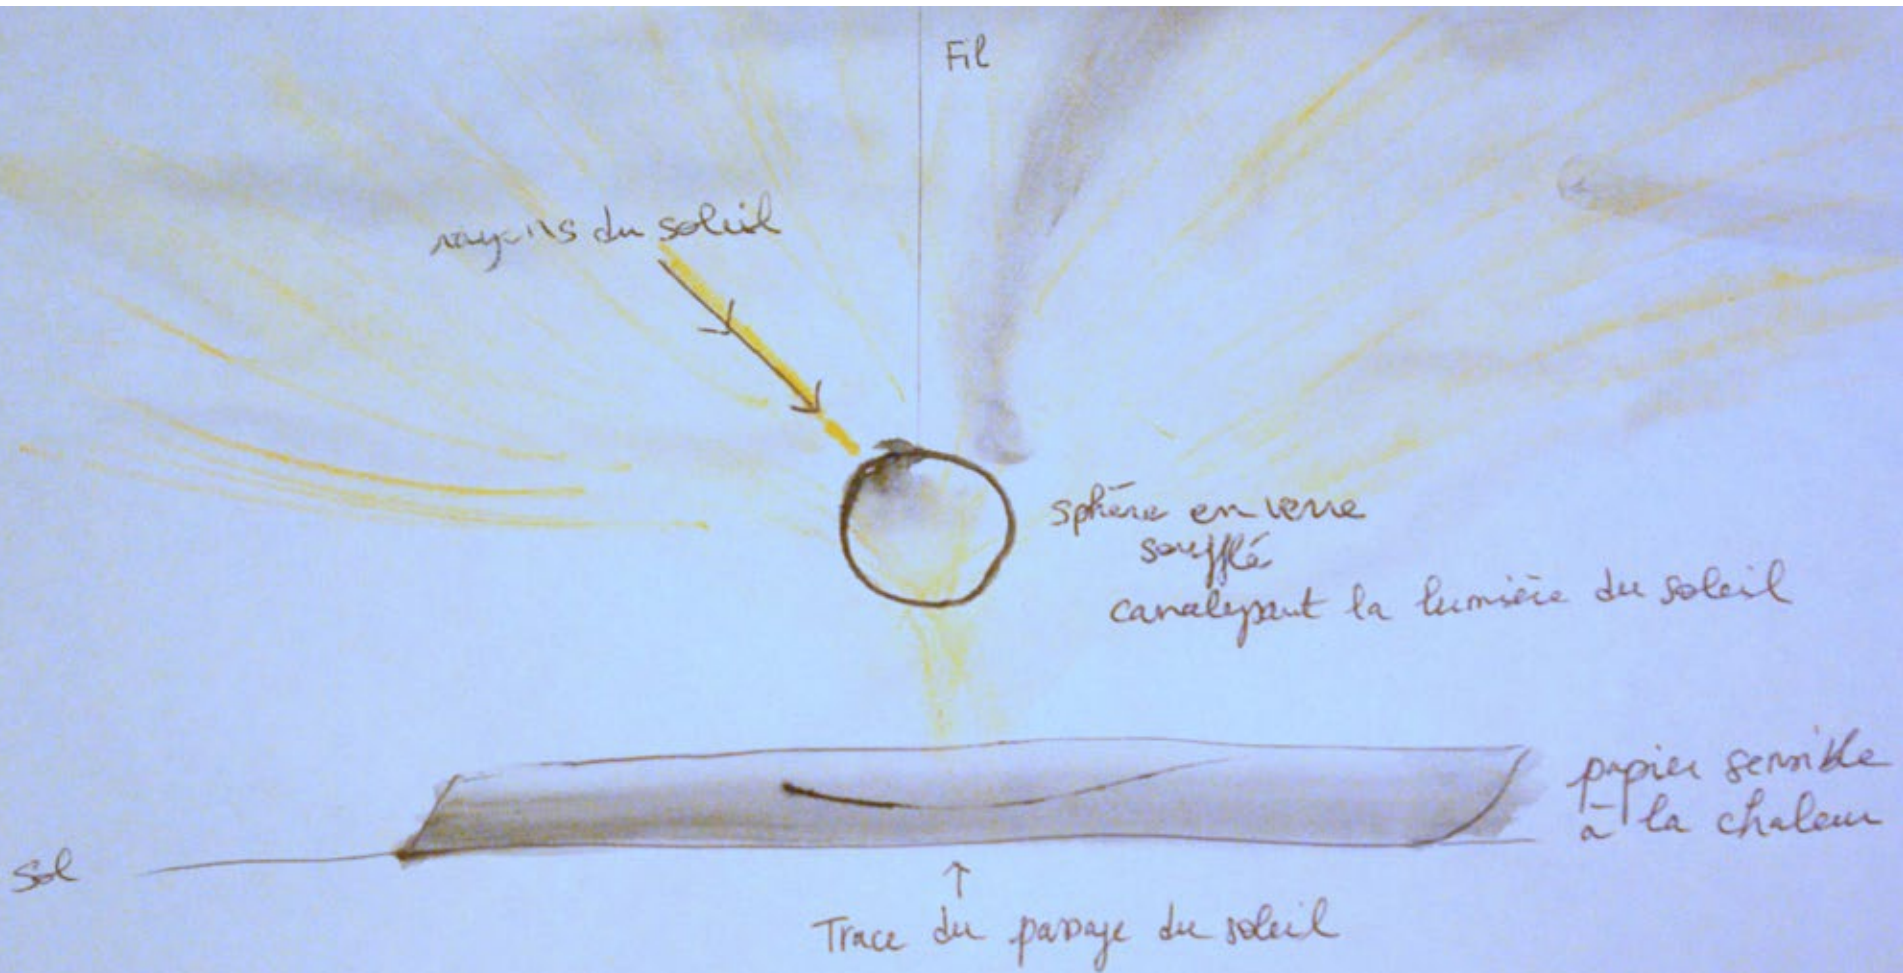 Fil
rayons du soleil
sphère en verre
soufflé
canalysant la lumière du soleil
papier sensible
à la chaleur
Sol
Trace du passage du soleil